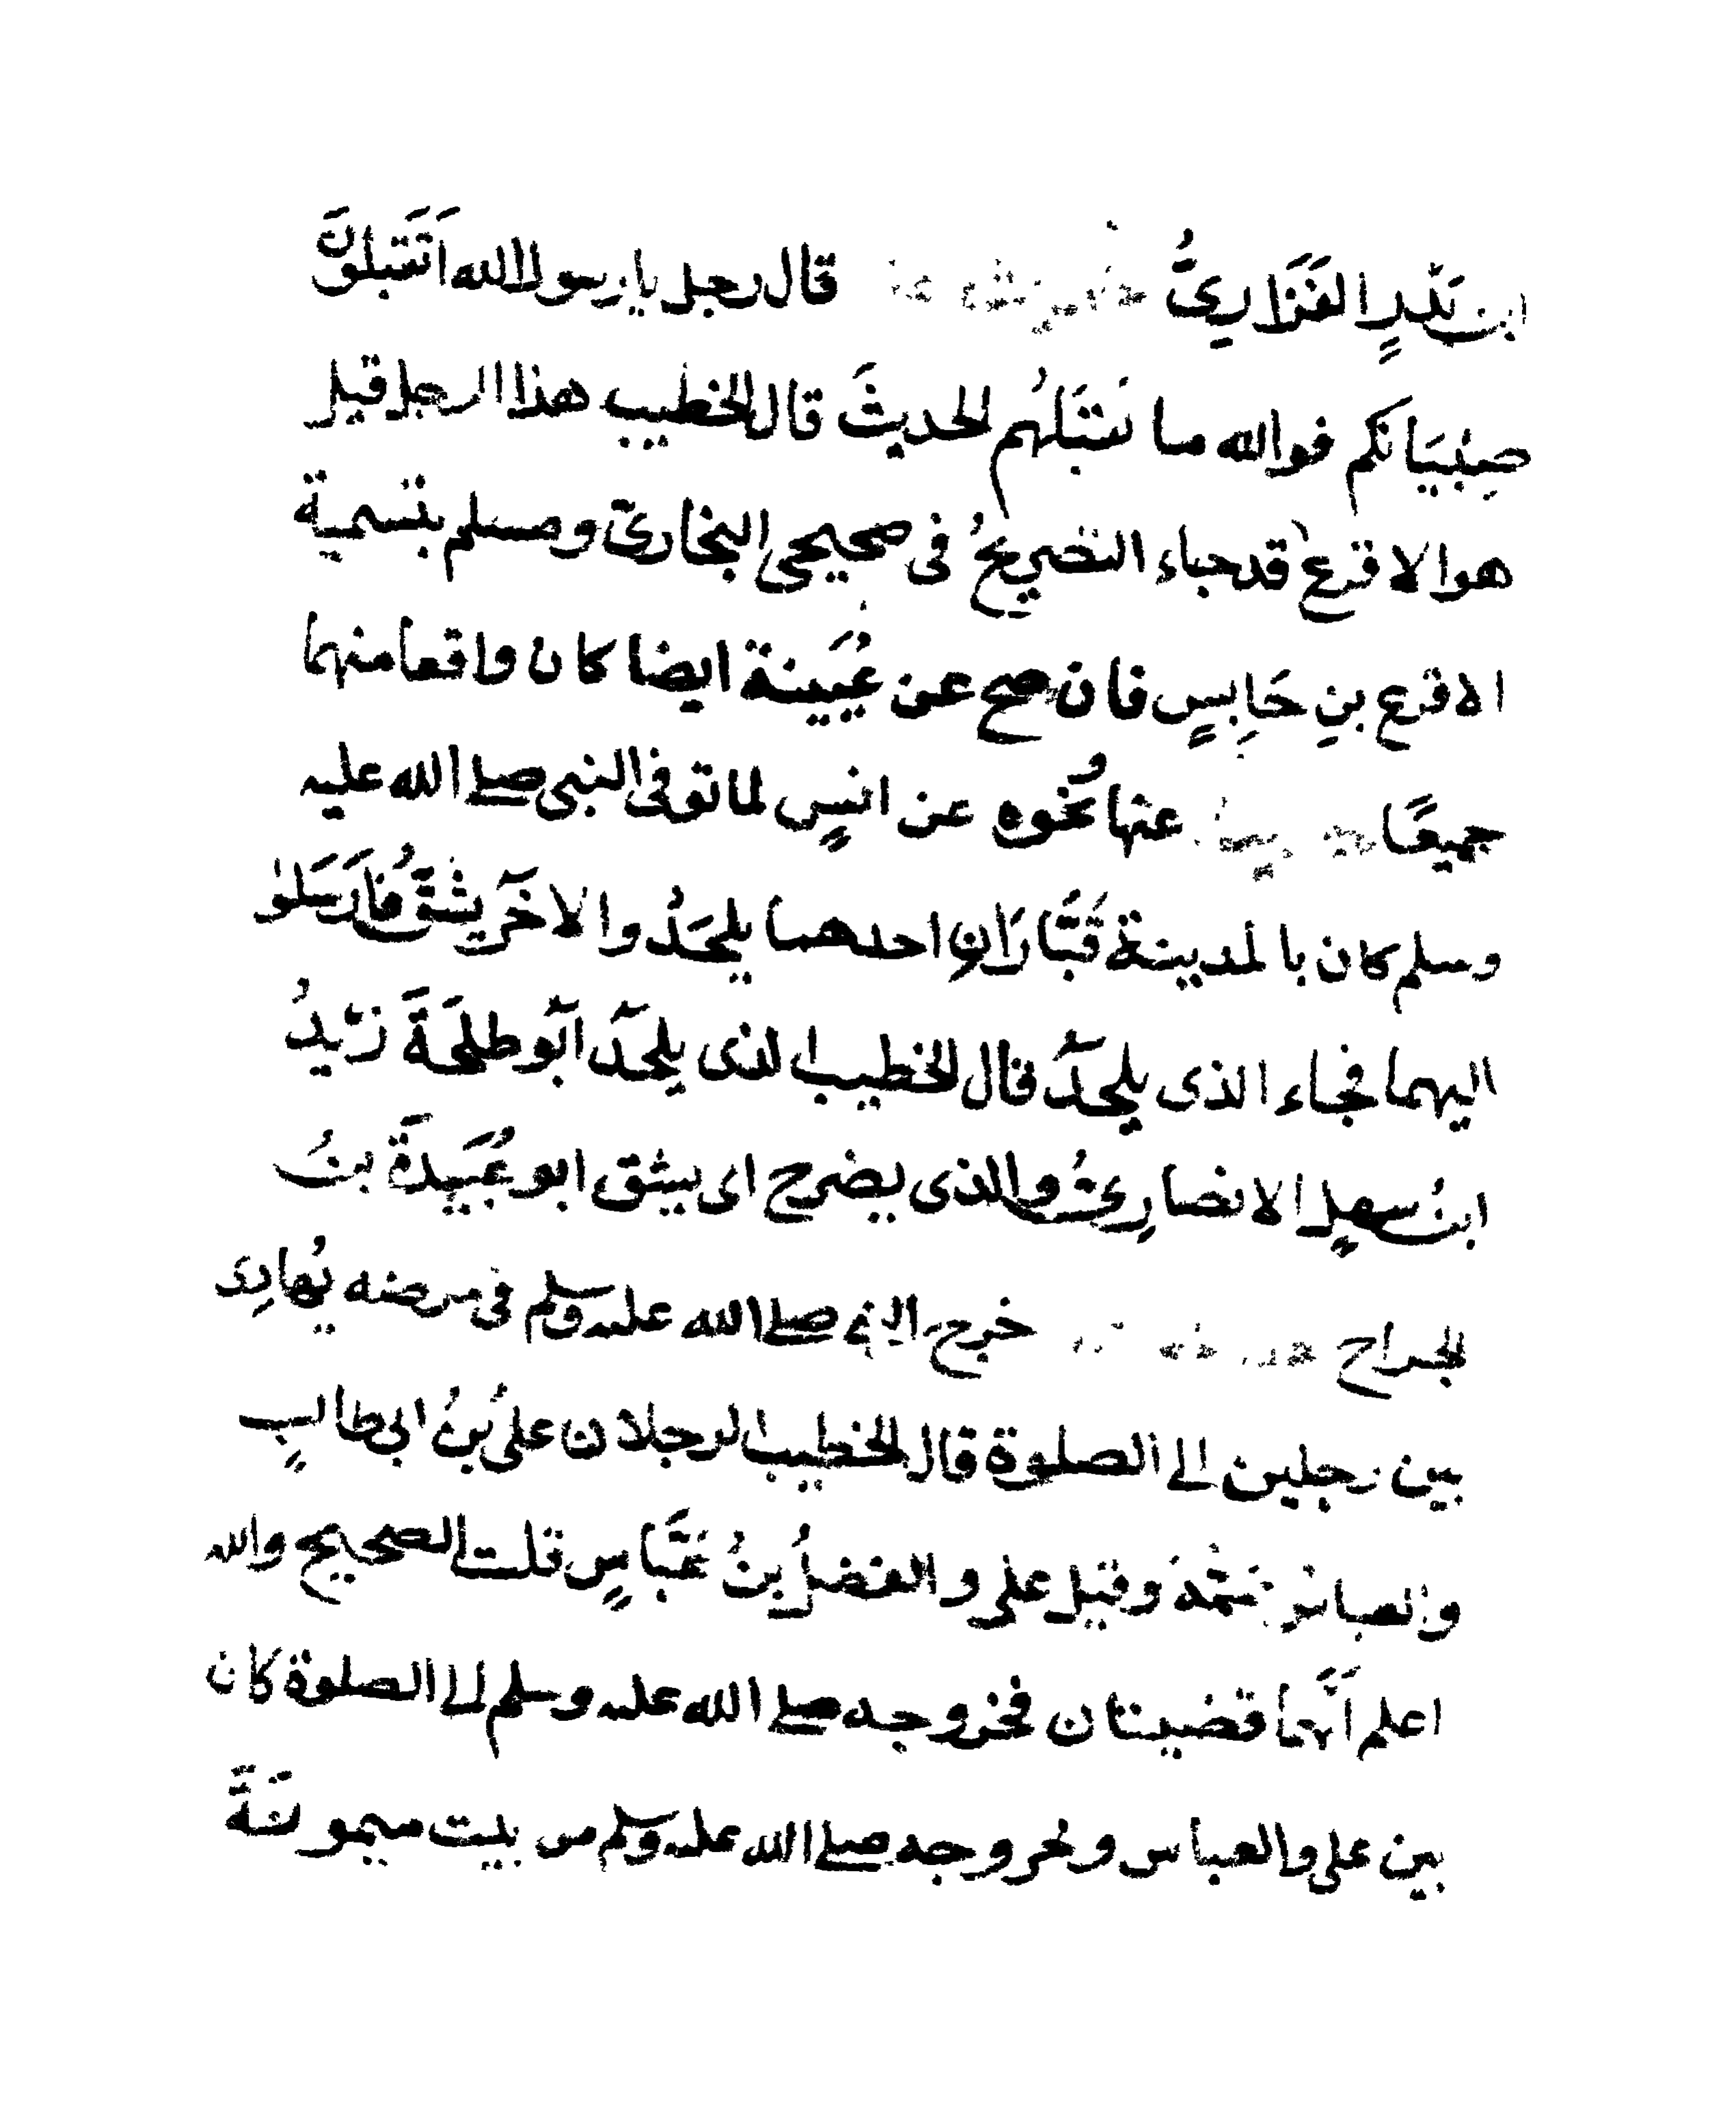 ابن بَدْرٍ الفَزَارِيُّ قال رجل يا رسول الله اَتُقَبِّلُونَ
صِبْيَانَكم فوالله ما نُقَبِّلُهُم الحديثَ قال الخطيب هذا الرجل قيل
هو الاقرع قد جاء التصريحُ فى صحيحى البخارىّ ومسلم بتسمية
الاقرع بنِ حَابِسٍ فان صح عن عُيَيْنة ايضا كان واقعا منهما
جميعًا عنها نحُوه عن انسٍ لما توفى النبى صلى الله عليه
وسلم كان بالمدينة قَبَّارَانِ احدهما يلحَدُ والاخَر يشُقُّ فَاَرسَلوْا
اليهما فجاء الذى يلحَد قال الخطيب الذى يلحَد اَبو طلحَةَ زَيْدُ
ابنُ سهلٍ الانصارِىُّ والذى يضرح اى يشق ابو عُبَيدَةَ بنُ
الجراح خرج النبى صلى الله عليه وسلم فى مرضه يُهادِى
بين رجلين الى الصلوة قال الخطيب الرجلان علىُّ بنُ ابى طالبٍ
والعباس وقيل على والفضلُ بنُ عَبَّاسٍ قلت الصحيح والله
اعلم اَنَّهما قضيتان فخروجه صلى الله عليه وسلم الى الصلوة كان
بين على والعباس وخروجه صلى الله عليه وسلم من بيت ميمونَةَ